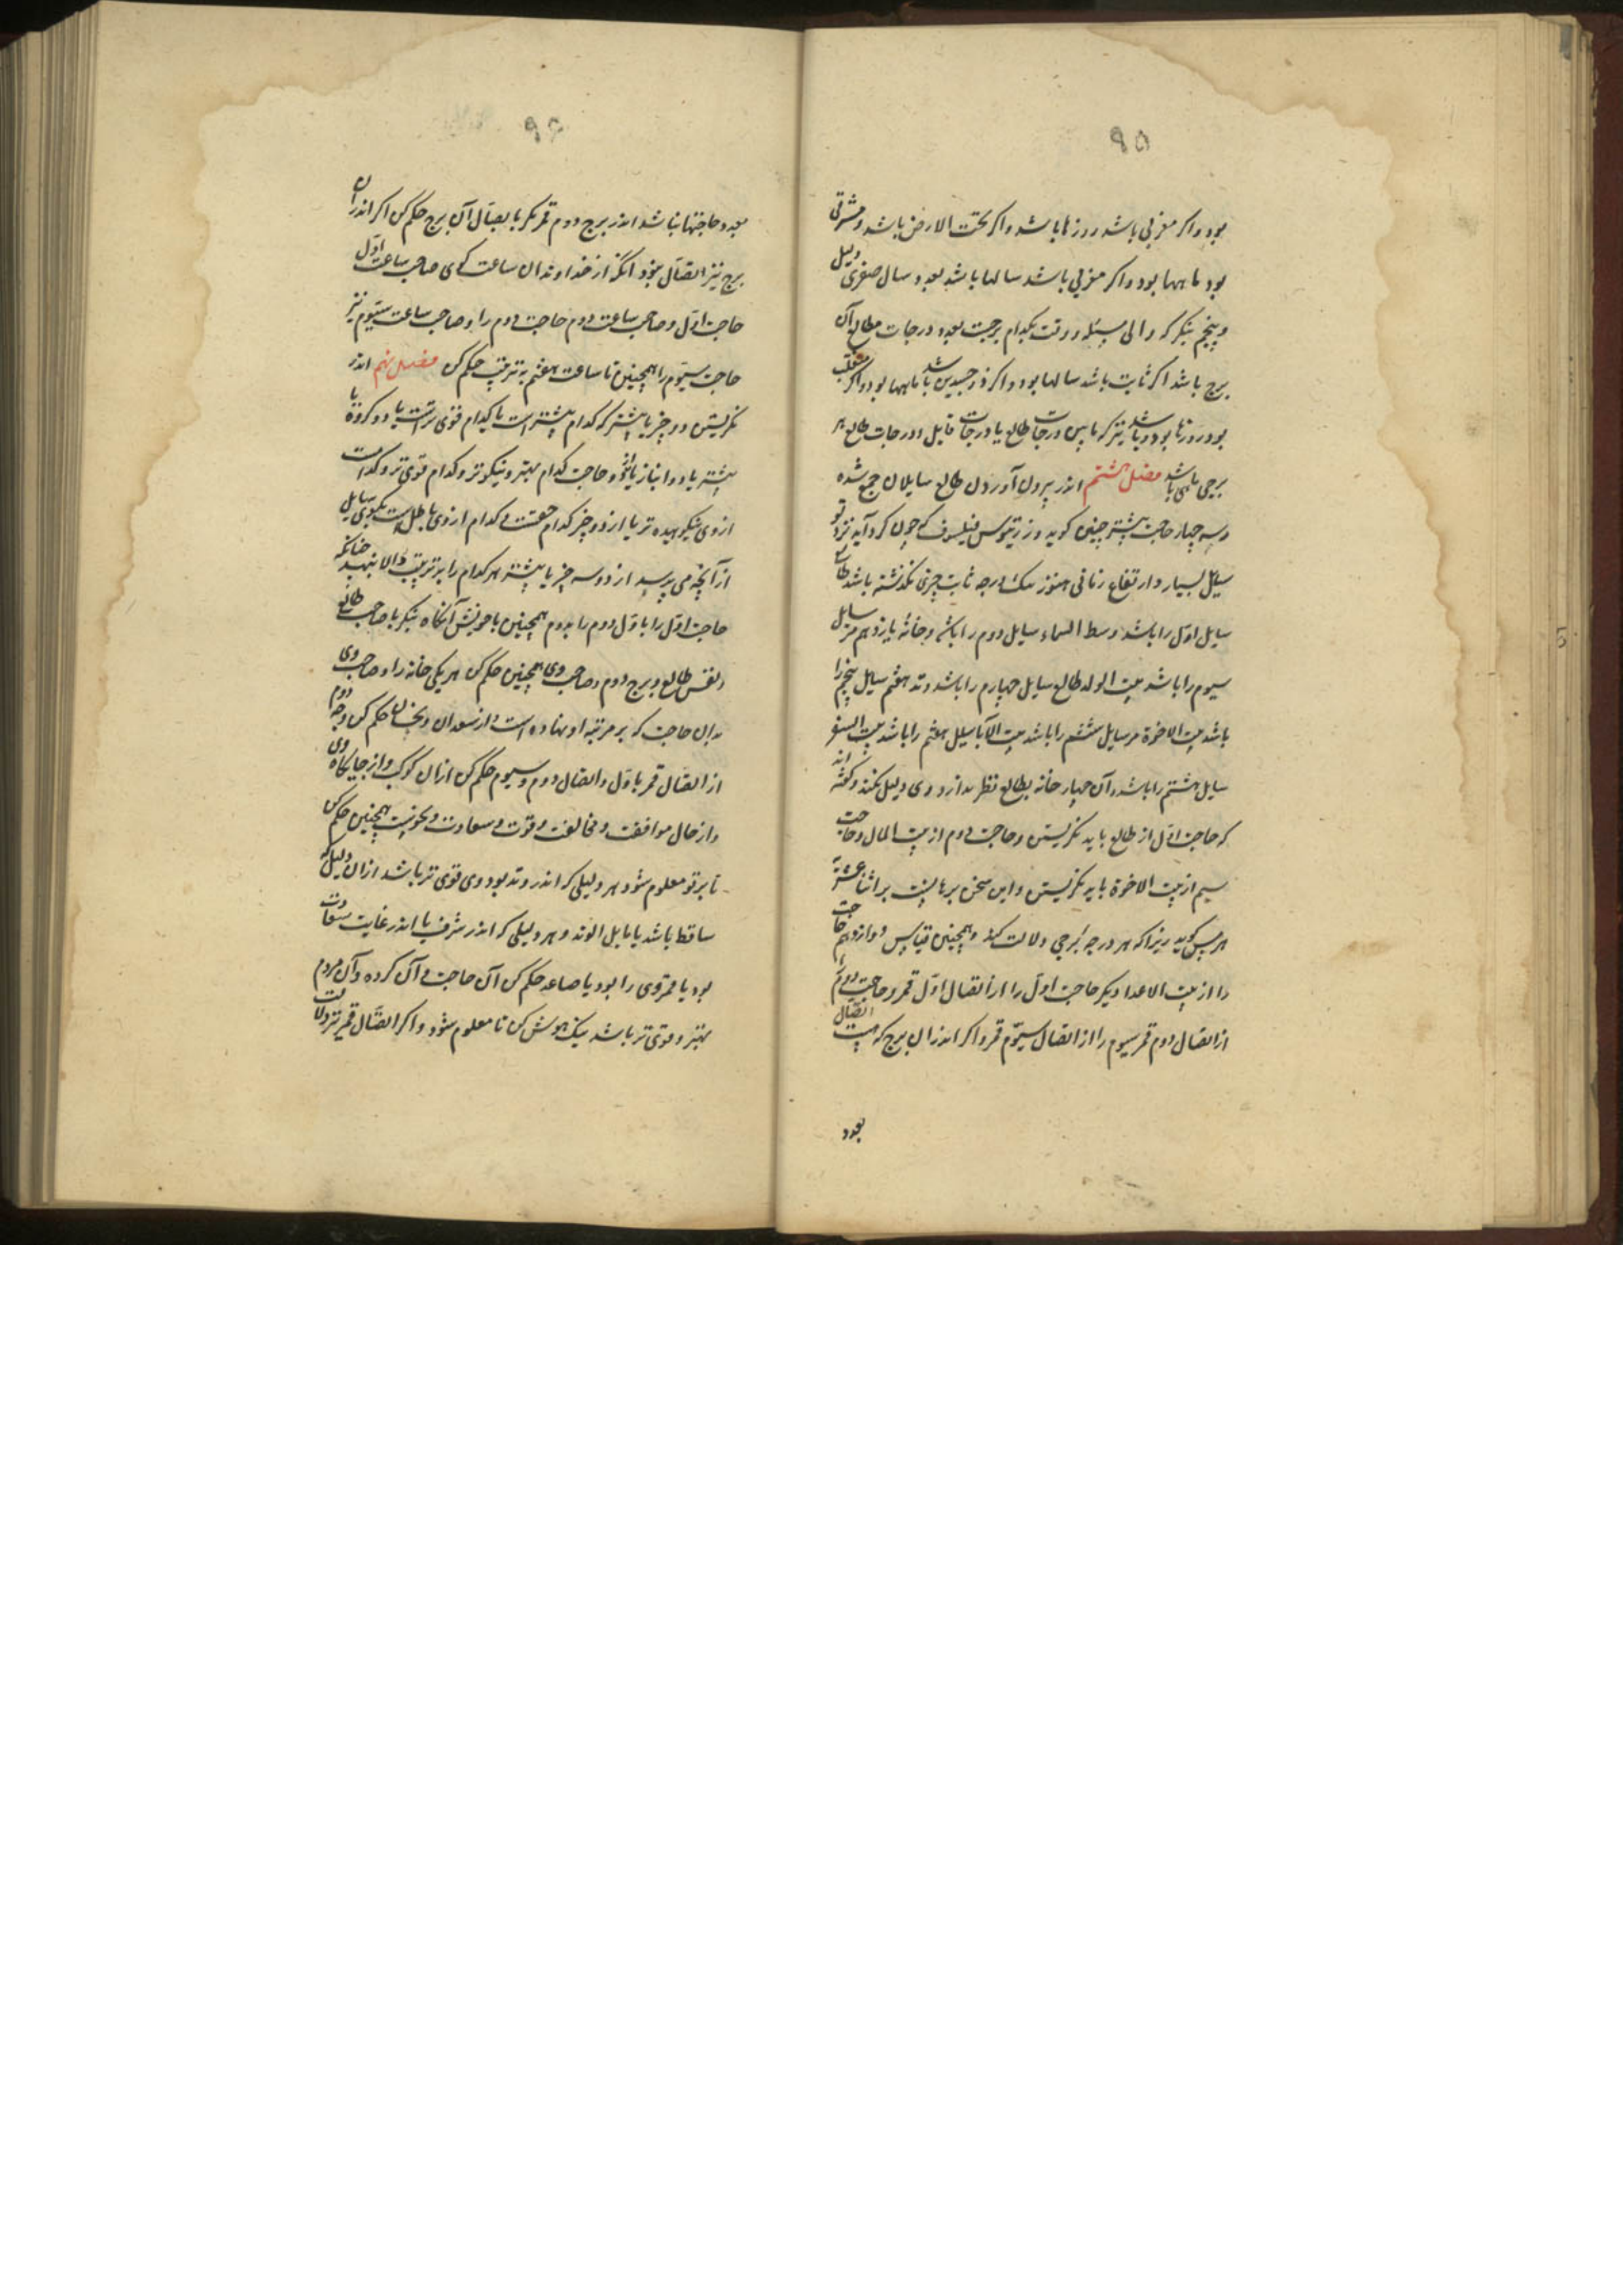 ۹۵
بود و اگر مغربی باشد روزها باشد و اگر تحت الارض باشد و مشرقی
بود ماهها بود و اگر مغربی باشد سالها باشد بعدد سال صغری دلیل
و پنجم بنگر که والی مسئله و وقت بکدام برجست بعدد درجات مطالع آن
برج باشد اگر ثابت باشد سالها بود و اگر ذوجسدین باشد ماهها بود و اگر منقلب
بود روزها بود و باشد نیز که مابین درجات طالع یا درجات قابل و درجات طالع هر
برجی باشد فصل هشتم اندر بیرون آوردن طالع سایلان جمع شده
و سه چهار حاجت بیشتر چنین گوید وزرتیوس فیلسوف که چون گرد آید نزد تو
سایل بسیار و ارتفاع زمانی هنوز یک درجه ثابت چیزی نگذشته باشد طالع
سایل اول را باشد وسط السماء سایل دوم را باشد و خانهٔ یازدهم مر سایل
سیوم را باشد بیت الولد طالع سایل چهارم را باشد وتد هفتم سایل پنجم را
باشد بیت الاخوة مر سایل ششم را باشد بیت الآبا سایل هفتم را باشد بیت السفر
سایل هشتم را باشد و آن چهار خانه بطالع نظر ندارد وی دلیل نکند و گفته اند
که حاجت اول از طالع باید نگریستن و حاجت دوم از بیت المال و حاجت
سیم از بیت الاخوة باید نگریستن و این سخن برهانیست بر اثنا عشریه
هرمس گوید زیرا که هر درجه برجی دلالت کند و همچنین قیاس دوازدهم حاجت
را از بیت الاعدا دیگر حاجت اول را از اتصال اول قمر و حاجت دوم را
از اتصال دوم قمر سیوم را از اتصال سیوم قمر و اگر اندران برج که هست اتصال
بعدد
۹۶
بعدد حاجتها نباشد اندر برج دوم قمر نگر باتصال آن برج حکم کن اگر اندران
برج نیز اتصال نبود آنگه از خداوندان ساعت گوی صاحب ساعت اول
حاجت اول و صاحب ساعت دوم حاجت دوم را و صاحب ساعت سیوم نیز
حاجت سیوم را همچنین تا ساعت هفتم به ترتیب حکم کن فصل نهم اندر
نگریستن دو چیز یا بیشتر که کدام بیشتر است یا کدام قوی تر است یا دو گروه یا
بیشتر یا دو انباز یا دو حاجت کدام بهتر و نیکوتر و کدام قوی تر و کدامست
از وی نیکوهیده تر یا از دو چیز کدام حقست و کدام از وی باطلست بگوی سایل
از آنچه می پرسد از دو سه چیز یا بیشتر هر کدام را بر ترتیب والا بنهد چنانکه
حاجت اول را باول دوم را بدوم همچنین باخویش آنگاه بنگر با صاحب طالع
و نفس طالع و برج دوم و صاحب وی همچنین حکم کن هر یکی خانه را و صاحب وی
بدان حاجت که بر مرتبه او نهاده است و از سعدان و نحسان حکم کن و وجه دوم
از اتصال قمر باول و اتصال دوم و سیوم حکم کن ازان کوکب و از جایگاه وی
و از حال موافقت و مخالفت و قوت و سعادت و نحوست همچنین حکم کن
تا بر تو معلوم شود هر دلیلی که اندر وتد بود وی قوی تر باشد ازان دلیل که
ساقط باشد یا مایل الوتد و هر دلیلی که اندر شرف یا اندر غایت سعادت
بود یا قمر وی را بود یا صاعد حکم کن آن حاجت و آن گروه و آن مردم
بهتر و قوی تر باشد نیک هوش کن تا معلوم شود و اگر اتصال قمر نیز دلالت